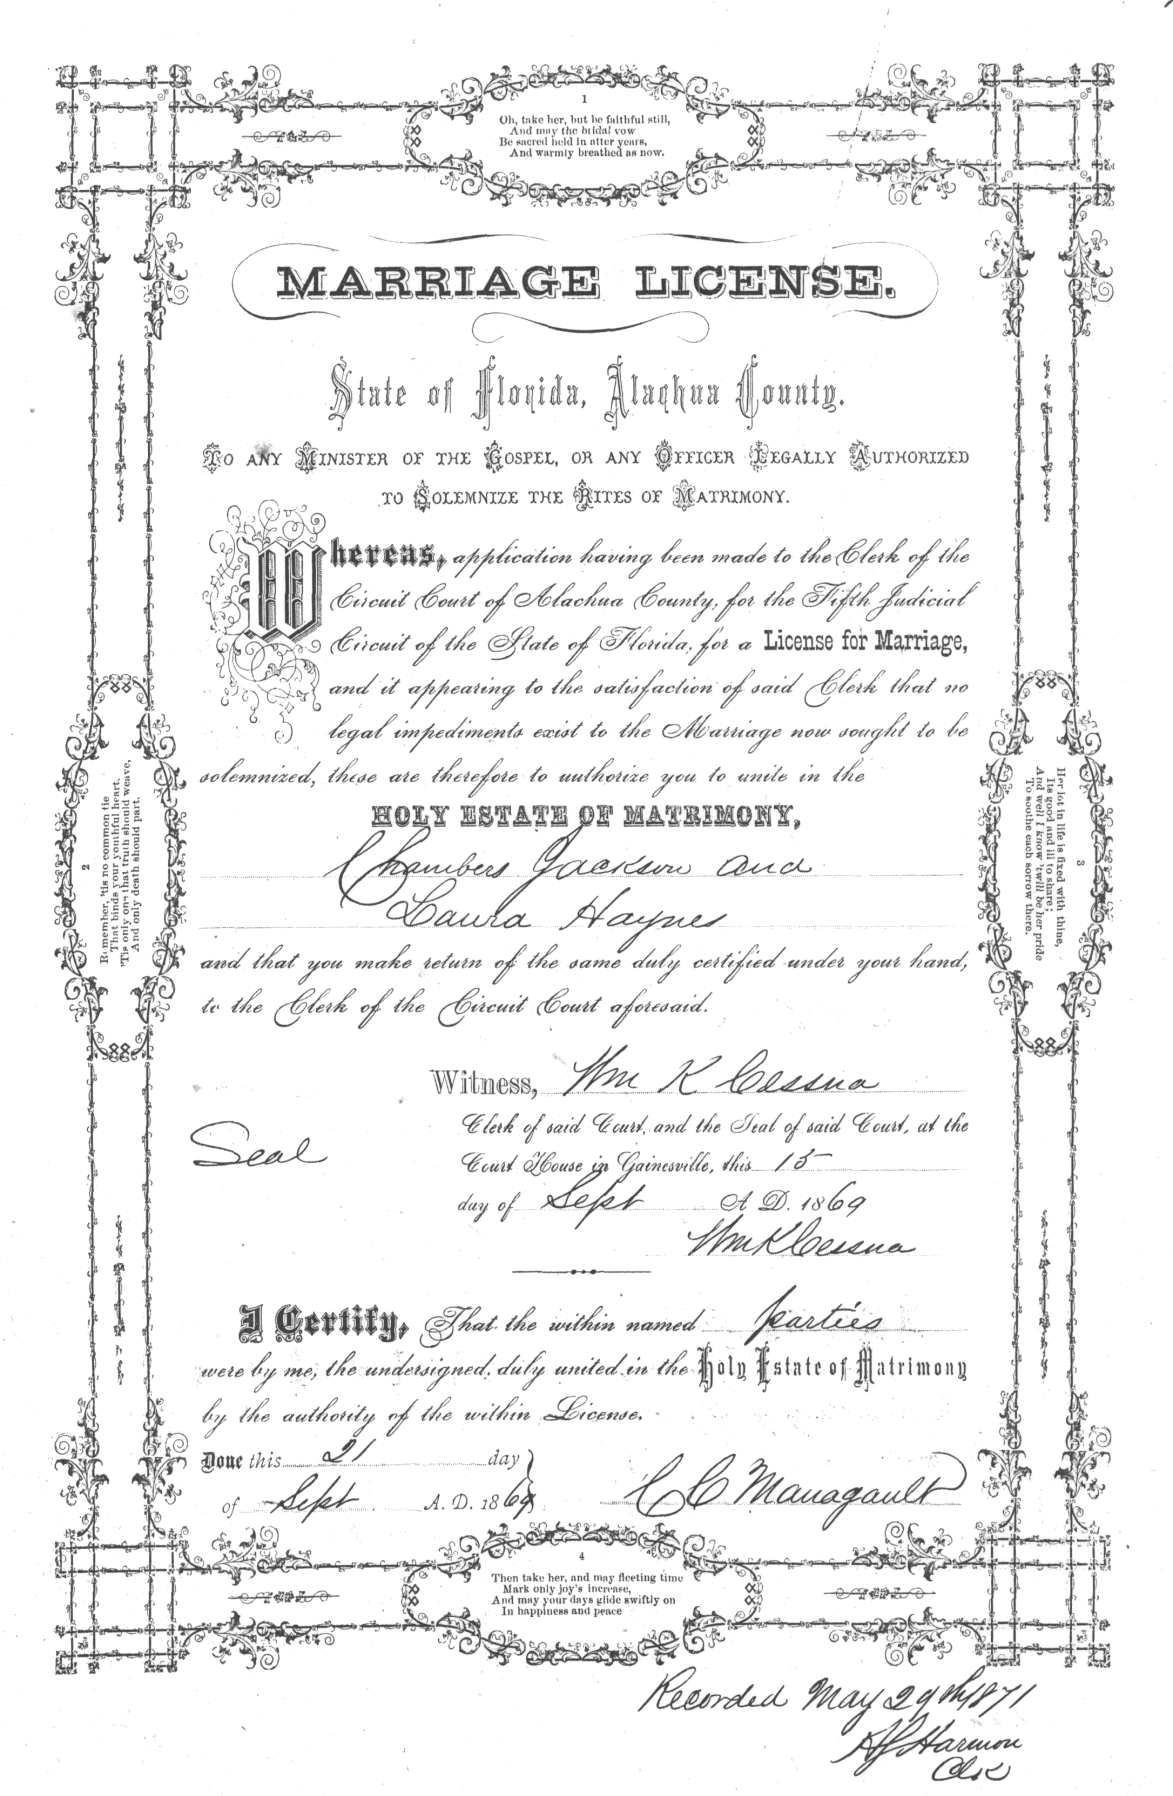 1
Oh, take her, but be faithful still,
And may the bridal vow
Be sacred held in after years,
And warmly breathed as now.
MARRIAGE LICENSE.
State of Florida, Alachua County.
TO ANY MINISTER OF THE GOSPEL, OR ANY OFFICER LEGALLY AUTHORIZED
TO SOLEMNIZE THE RITES OF MATRIMONY.
Whereas, application having been made to the Clerk of the
Circuit Court of Alachua County, for the Fifth Judicial
Circuit of the State of Florida, for a License for Marriage,
and it appearing to the satisfaction of said Clerk that no
legal impediments exist to the Marriage now sought to be
solemnized, these are therefore to authorize you to unite in the
HOLY ESTATE OF MATRIMONY,
Chambers Jackson and
Laura Haynes
and that you make return of the same duly certified under your hand,
to the Clerk of the Circuit Court aforesaid.
2
Remember, 'tis no common tie
That binds your youthful heart,
'Tis only one that truth should weave,
And only death should part.
3
Her lot in life is fixed with thine,
Its good and ill to share;
And well I know 'twill be her pride
To soothe each sorrow there.
Witness, Wm K Cessna
Clerk of said Court, and the Seal of said Court, at the
Seal
Court House in Gainesville, this 15
day of Sept A D. 1869
Wm K Cessna
I Certify, That the within named parties
were by me, the undersigned, duly united in the Holy Estate of Matrimony
by the authority of the within License.
Done this 21 day
of Sept A. D. 1869
C C Managault
4
Then take her, and may fleeting time
Mark only joy's increase,
And may your days glide swiftly on
In happiness and peace
Recorded May 29th 1871
Harmon
Clk